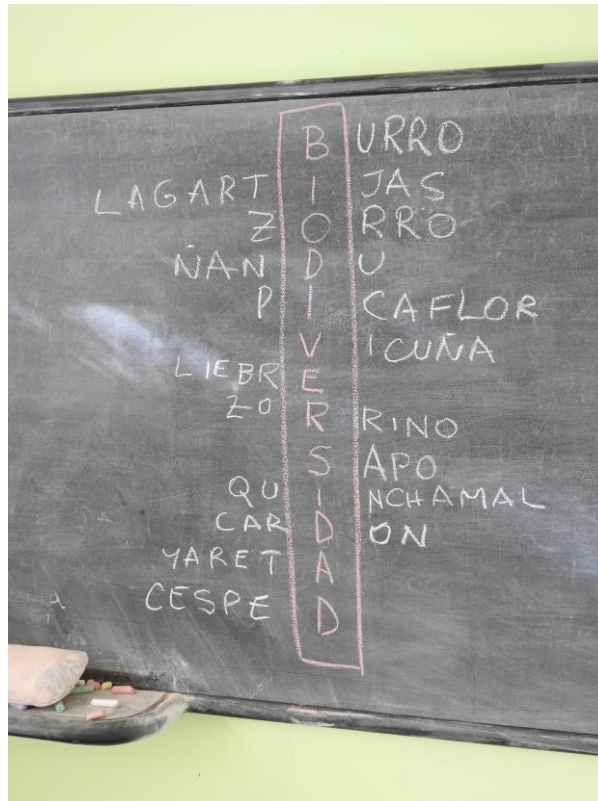 BURRO
LAGARTIJAS
ZORRO
ÑANDU
PICAFLOR
VICUÑA
LIEBRE
ZORRINO
SAPO
QUINCHAMAL
CARDON
YARETA
CESPED